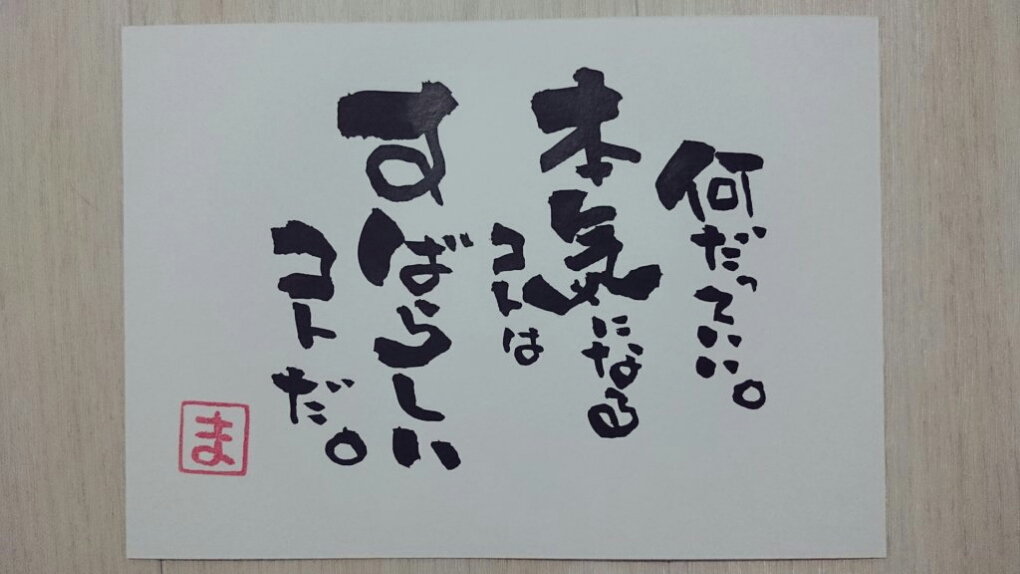 何だっていい。
本気になる
コトは
すばらしい
コトだ。
ま